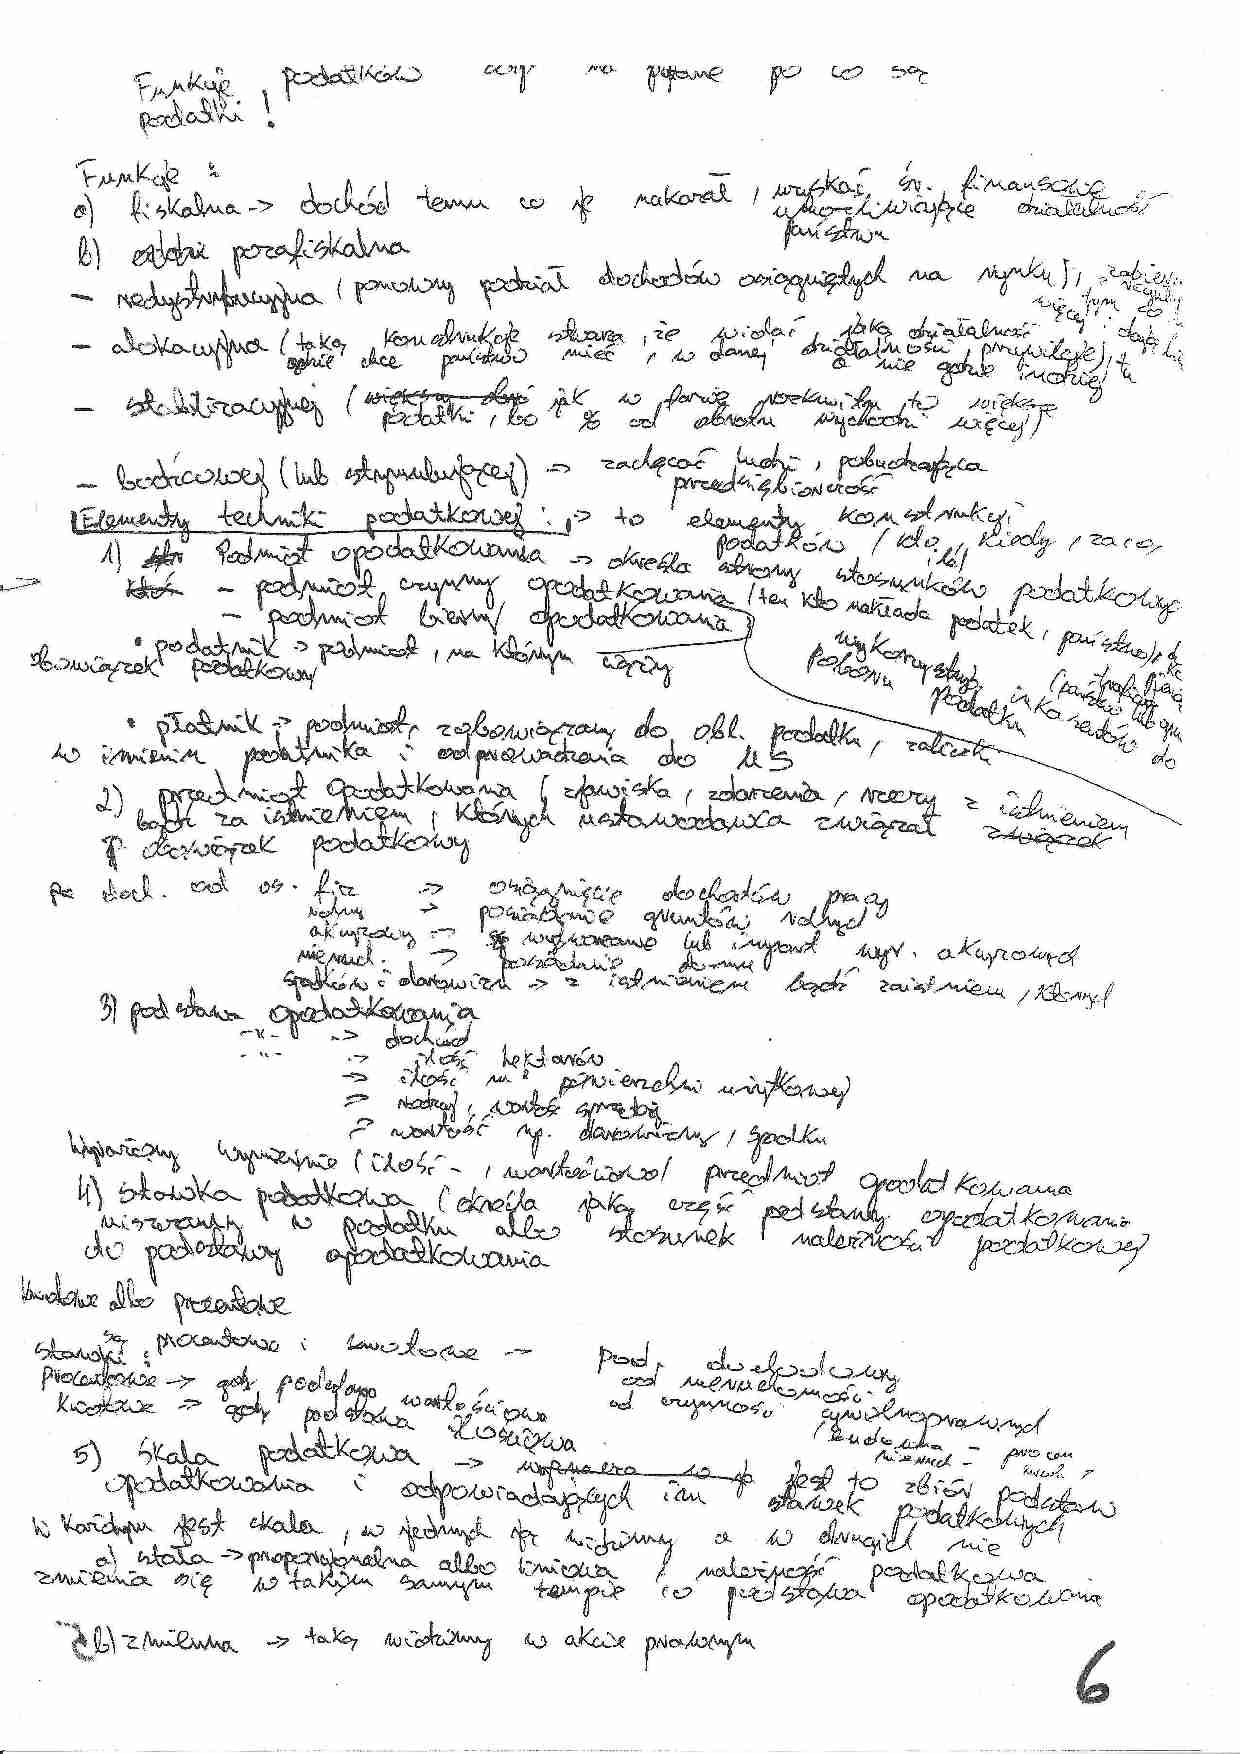 Funkcje podatków czyli na pytanie po co są
podatki!
Funkcje:
a) fiskalna -> dochód temu co je nakazał, uzyskać śr. finansowe
umożliwiające działalność
państwa
b) pozafiskalna
- redystrybucyjna (ponowny podział dochodów osiągniętych na rynku),
- alokacyjna (taka konstrukcja stwarza, że widać, jaką działalność
gdzie chce państwo mieć, w danej działalności, przywileje), tu
a nie gdzie indziej
- stabilizacyjnej (jak w fazie rozkwitu to większe
podatki, bo % od obrotu wychodzi więcej)
- bodźcowej (lub stymulującej) -> zachęcać ludzi, pobudzająca
przedsiębiorczość
Elementy techniki podatkowej: -> to elementy konstrukcji
podatków / kto, ile, kiedy, za co,
1) Podmiot opodatkowania -> określa strony stosunków podatkowyc
-> - podmiot czynny opodatkowania (ten kto nakłada podatek, państwo),
- podmiot bierny opodatkowania
• podatnik -> podmiot, na którym ciąży
obowiązek podatkowy
wykorzystuje inkasentów do
poboru podatku
• płatnik -> podmiot, zobowiązany do obl. podatku, zaliczki
w imieniu podatnika i odprowadzenia do US
2) przedmiot opodatkowania (zjawiska, zdarzenia, rzeczy z istnieniem
bądź zaistnieniem, których ustawodawca związał związek
obowiązek podatkowy
doch. od os. fiz -> osiągnięcie dochodów pracy
rolny -> posiadanie gruntów rolnych
akcyzowy -> wytworzenie lub import wyr. akcyzowych
nieruch. -> posiadanie domu
spadków i darowizn -> z istnieniem bądź zaistnieniem, których
3) podstawa opodatkowania
-"- -> dochód
-"- -> ilość hektarów
-> ilość m² powierzchni użytkowej
-> rodzaj, wartość sprzęt
-> wartość np. darowizny, spadku
wyrażony wymiernie (ilość-, wartościowo) przedmiot opodatkowania
4) stawka podatkowa (określa jaką część podstawy opodatkowania
w podatku albo stosunek należności podatkowej
do podstawy opodatkowania
kwotowe albo procentowe
stawki są: procentowe i kwotowe - pod. dochodowy
procentowe -> gdy podstawa wartościowa od nieruchomości
kwotowe -> gdy podstawa ilościowa od czynności cywilnoprawnych
5) Skala podatkowa -> jest to zbiór podstaw
opodatkowania i odpowiadających im stawek podatkowych
w każdym jest skala, w jednych ją widzimy a w drugich nie
a) stała -> proporcjonalna albo liniowa / należność podatkowa
zmienia się w takim samym tempie co podstawa opodatkowania
b) zmienna -> taką widzimy w akcie prawnym
6